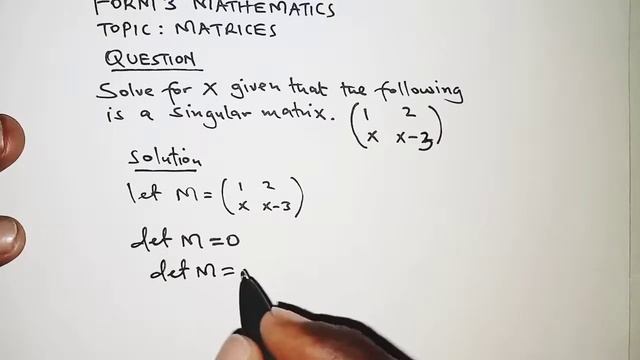 FORM 3 MATHEMATICS
TOPIC: MATRICES
QUESTION
Solve for x given that the following
is a singular matrix. (1 2
x x-3)
Solution
let M = (1 2
x x-3)
det M = 0
det M =